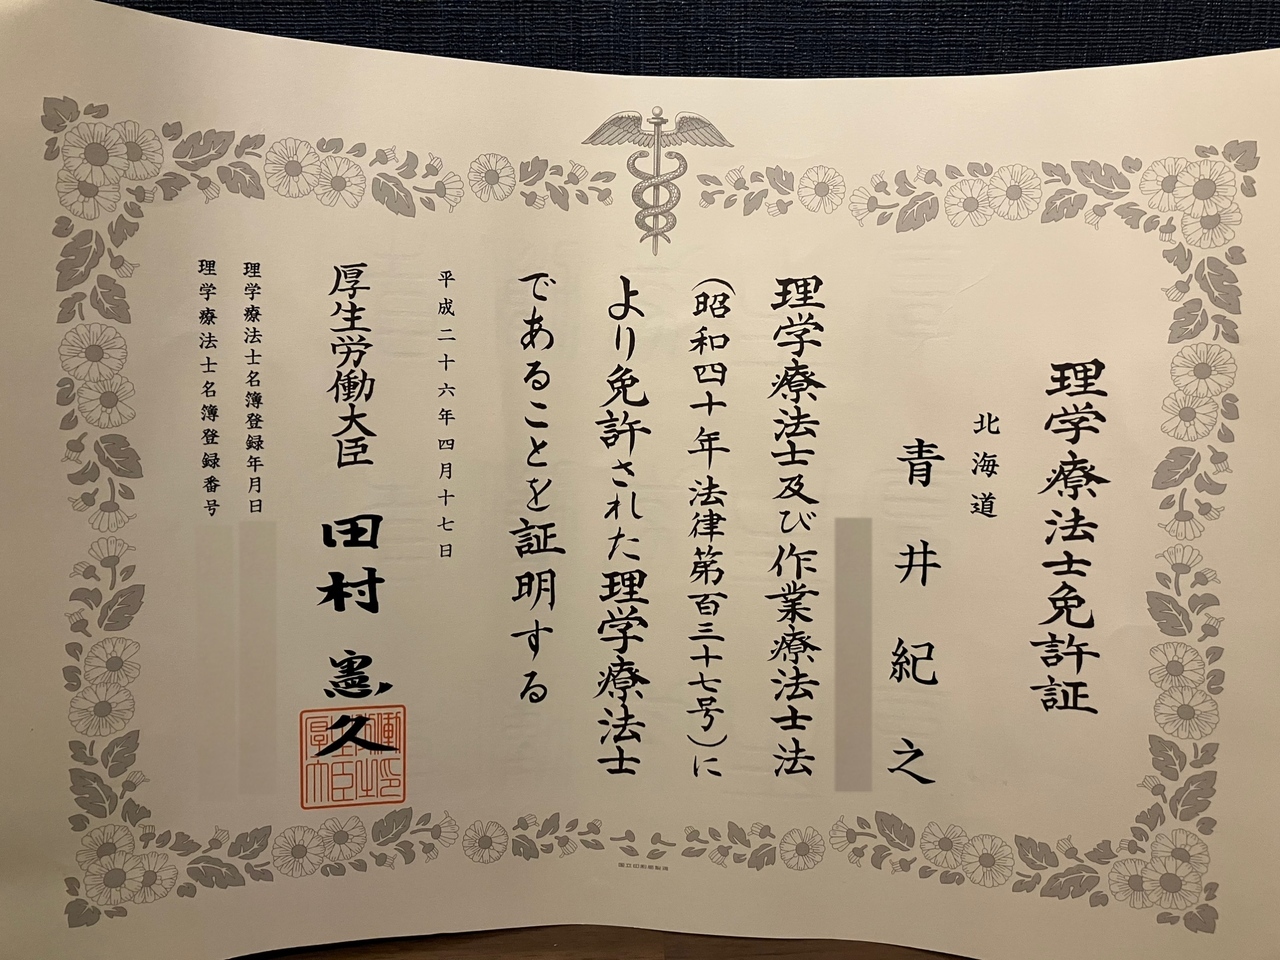 理学療法士免許証
北海道
青井紀之
理学療法士及び作業療法士法
(昭和四十年法律第百三十七号)に
より免許された理学療法士
であることを証明する
平成二十六年四月十七日
厚生労働大臣 田村憲久
理学療法士名簿登録年月日
理学療法士名簿登録番号
国立印刷局製造